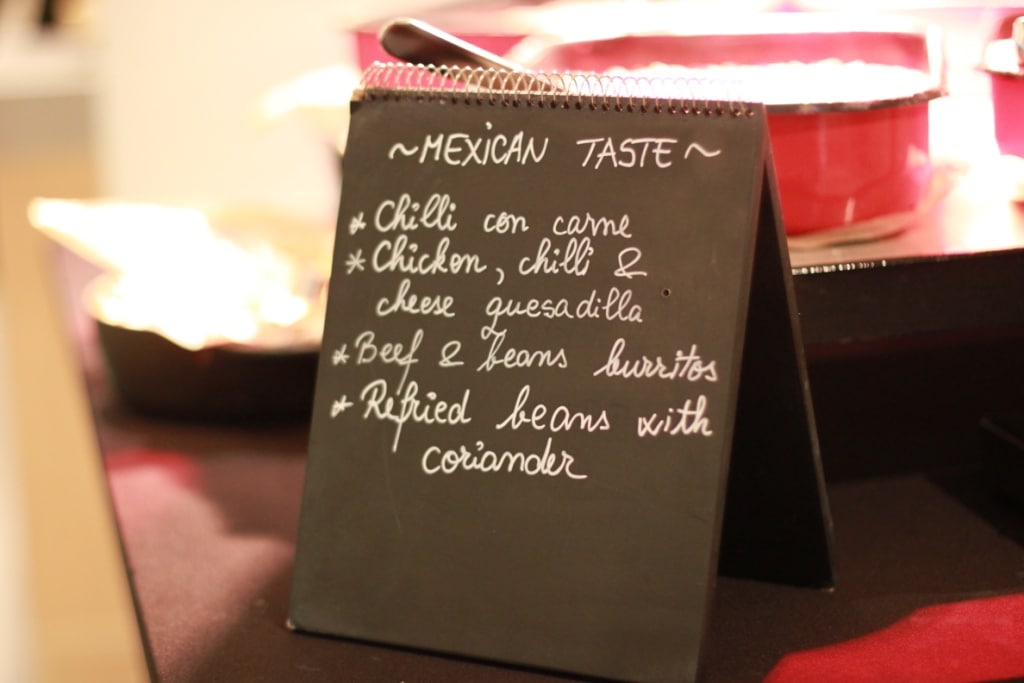 ~MEXICAN TASTE~
* Chilli con carne
* Chicken, chilli &
cheese quesadilla
* Beef & beans burritos
* Refried beans with
coriander